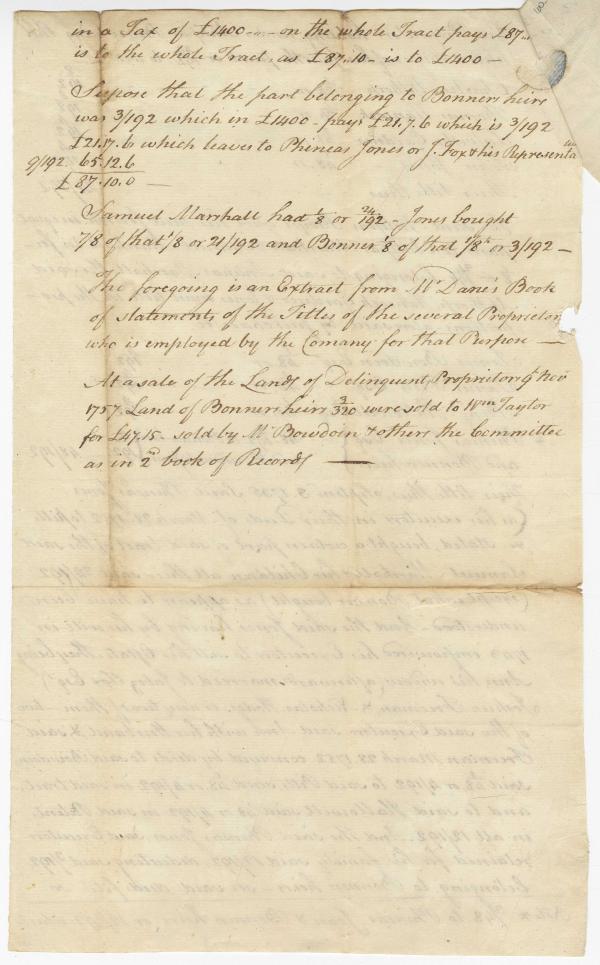 in a Tax of £1400 - - on the whole Tract pays £87..
is to the whole Tract, as £87.10 - is to £1400 -
Supose that the part belonging to Bonners heirs
was 3/192 which in £1400 - pays £21.7.6 which is 3/192
£21.17.6 which leaves to Phineas Jones or J. Fox & his Representa
9/192 65.12.6
£87.10.0 -
Samuel Marshall had 1/8 or 24/192 - Jones bought
7/8 of that 1/8 or 21/192 and Bonner 1/8 of that 1/8th or 3/192 -
The foregoing is an Extract from Mr Dane's Book
of statements of the Titles of the several Proprietor
who is employed by the Comany for that Purpose —
At a sale of the Lands of Delinquent Proprietors Nov
1757. Land of Bonners heirs 3/320 were sold to Wm Taylor
for £47.15 - sold by Mr Bowdoin & others the Committee
as in 2nd book of Records —